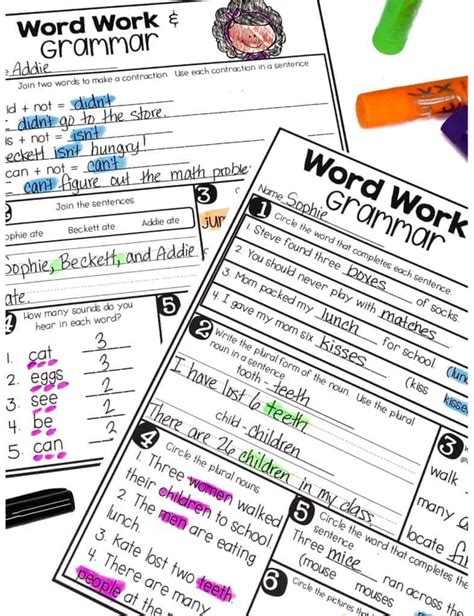 Word Work &
Grammar
Addie
Join two words to make a contraction. Use each contraction in a sentence
id + not = didn't
didn't go to the store.
is + not = isn't
eckett isn't hungry!
can + not = can't
can't figure out the math proble
Join the sentences
ophie ate Beckett ate Addie ate
ophie, Beckett, and Addie
ate.
3
jur
4 How many sounds do you
hear in each word?
1. cat 3
2. eggs 3
3. see 2
4. be 2
5. can 3
5
Word Work
Grammar
Name Sophie
1 Circle the word that completes each sentence.
1. Steve found three boxes of socks.
2. You should never play with matches.
3. Mom packed my lunch for school. (lun
4. I gave my mom six kisses (kiss kisse
2 Write the plural form of the noun. Use the plural
noun in a sentence.
tooth - teeth
I have lost 6 teeth
child - children
There are 26 children in my class.
3
walk
many
locate fi
4 Circle the plural nouns
1. Three women walked
their children to school
2. The men are eating
lunch.
3. Kate lost two teeth.
4. There are many
people at the
5 Circle the word that completes the
sentence.
Three mice ran across the
(mouse mouses
6 Circle the pictures that